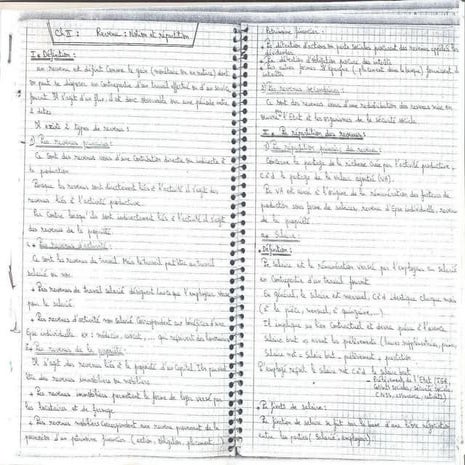 Ch II : Revenu : Notion et répartition
I. Définition :
un revenu est défini comme le gain (monétaire ou en nature) dont
on peut se disposer en contrepartie d'un travail effectué ou d'un service
fourni. Il s'agit d'un flux, il est donc observable sur une période entre
2 dates.
Il existe 2 types de revenus :
1) Les revenus primaires :
Ce sont des revenus issus d'une contribution directe ou indirecte à
la production.
Lorsque les revenus sont directement liés à l'activité il s'agit des
revenus liés à l'activité productive.
Par contre lorsqu'ils sont indirectement liés à l'activité il s'agit
des revenus de la propriété.
Les revenus d'activité :
Ce sont les revenus de travail. Mais le travail peut être un travail
salarié ou non.
Les revenus de travail salarié désignent lorsque l'employeur verse
par le salarié.
Les revenus d'activité non salarié correspondent aux bénéfices d'une
individuelle. ex : médecin, avocat, ... qui reçoivent des honoraires
Les revenus de la propriété :
Il s'agit des revenus liés à la propriété d'un capital. Ils peuvent
être des revenus immobiliers ou mobiliers
Les revenus immobiliers prennent la forme de loyer versé par
les locataires et de fermage.
Les revenus mobiliers correspondent aux revenus provenant de la
possession d'un patrimoine financier (action, obligation, placement...)
Patrimoine financier :
La détention d'actions ou parts sociales procurent des revenus appelés les
dividendes.
La détention d'obligation procure des intérêts
Les autres formes d'épargne (placement dans la banque) fournissent des
intérêts
2) Les revenus secondaires :
Ce sont des revenus issus d'une redistribution des revenus mise en
oeuvre l'Etat et les organismes de la sécurité sociale.
II. La répartition des revenus :
1) La répartition primaire des revenus :
Concerne le partage de la richesse créée par l'activité productive,
c'à'd le partage de la valeur ajoutée (VA).
La VA est ainsi à l'origine de la rémunération des facteurs de
production sous forme de salaires, revenus d'épse individuelle, revenus
de la propriété
a. Salaire :
Définition :
Le salaire est la rémunération versée par l'employeur au salarié
en contrepartie d'un travail fourni.
En général, le salaire est mensuel, c'à'd identique chaque mois
(à la pièce, mensuel, à quinzaine, ...).
Il implique un lien contractuel et donne prise à l'avance.
Salaire brut = avant les prélèvements (heures supplémentaires, primes,
Salaire net = Salaire brut - prélèvement
L'employé reçoit le salaire net c'à'd le salaire brut
- Prélèvement de l'Etat (IGR,
CNSS, assurance, retraite)
La fixation de salaire :
La fixation de salaire se fait sur la base d'une libre négociation
entre les parties (Salarié, employeur)